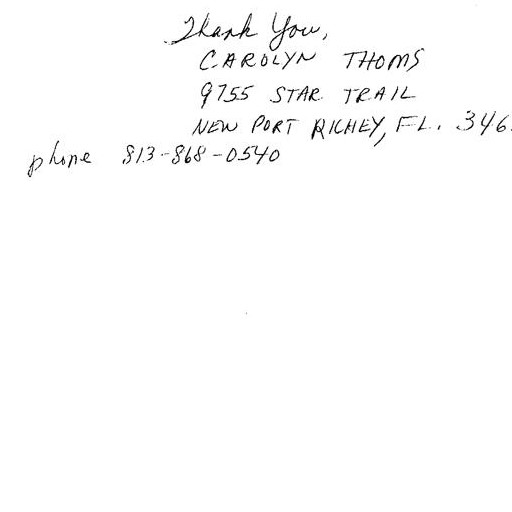 Thank You,
CAROLYN THOMS
9755 STAR TRAIL
NEW PORT RICHEY, FL. 346
phone 813-868-0540